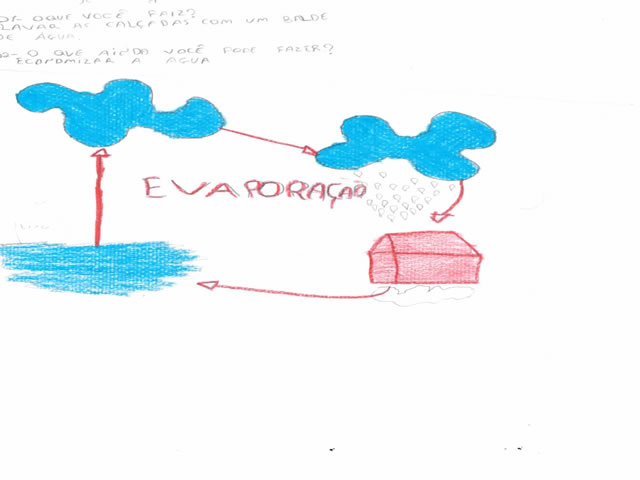 OQUE VOCÊ FAIZ?
LAVAR AS CALÇADAS COM UM BALDE
DE AGUA.
O QUE AINDA VOCÊ PODE FAZER?
ECONOMIZAR A AGUA
EVAPORAÇÃO